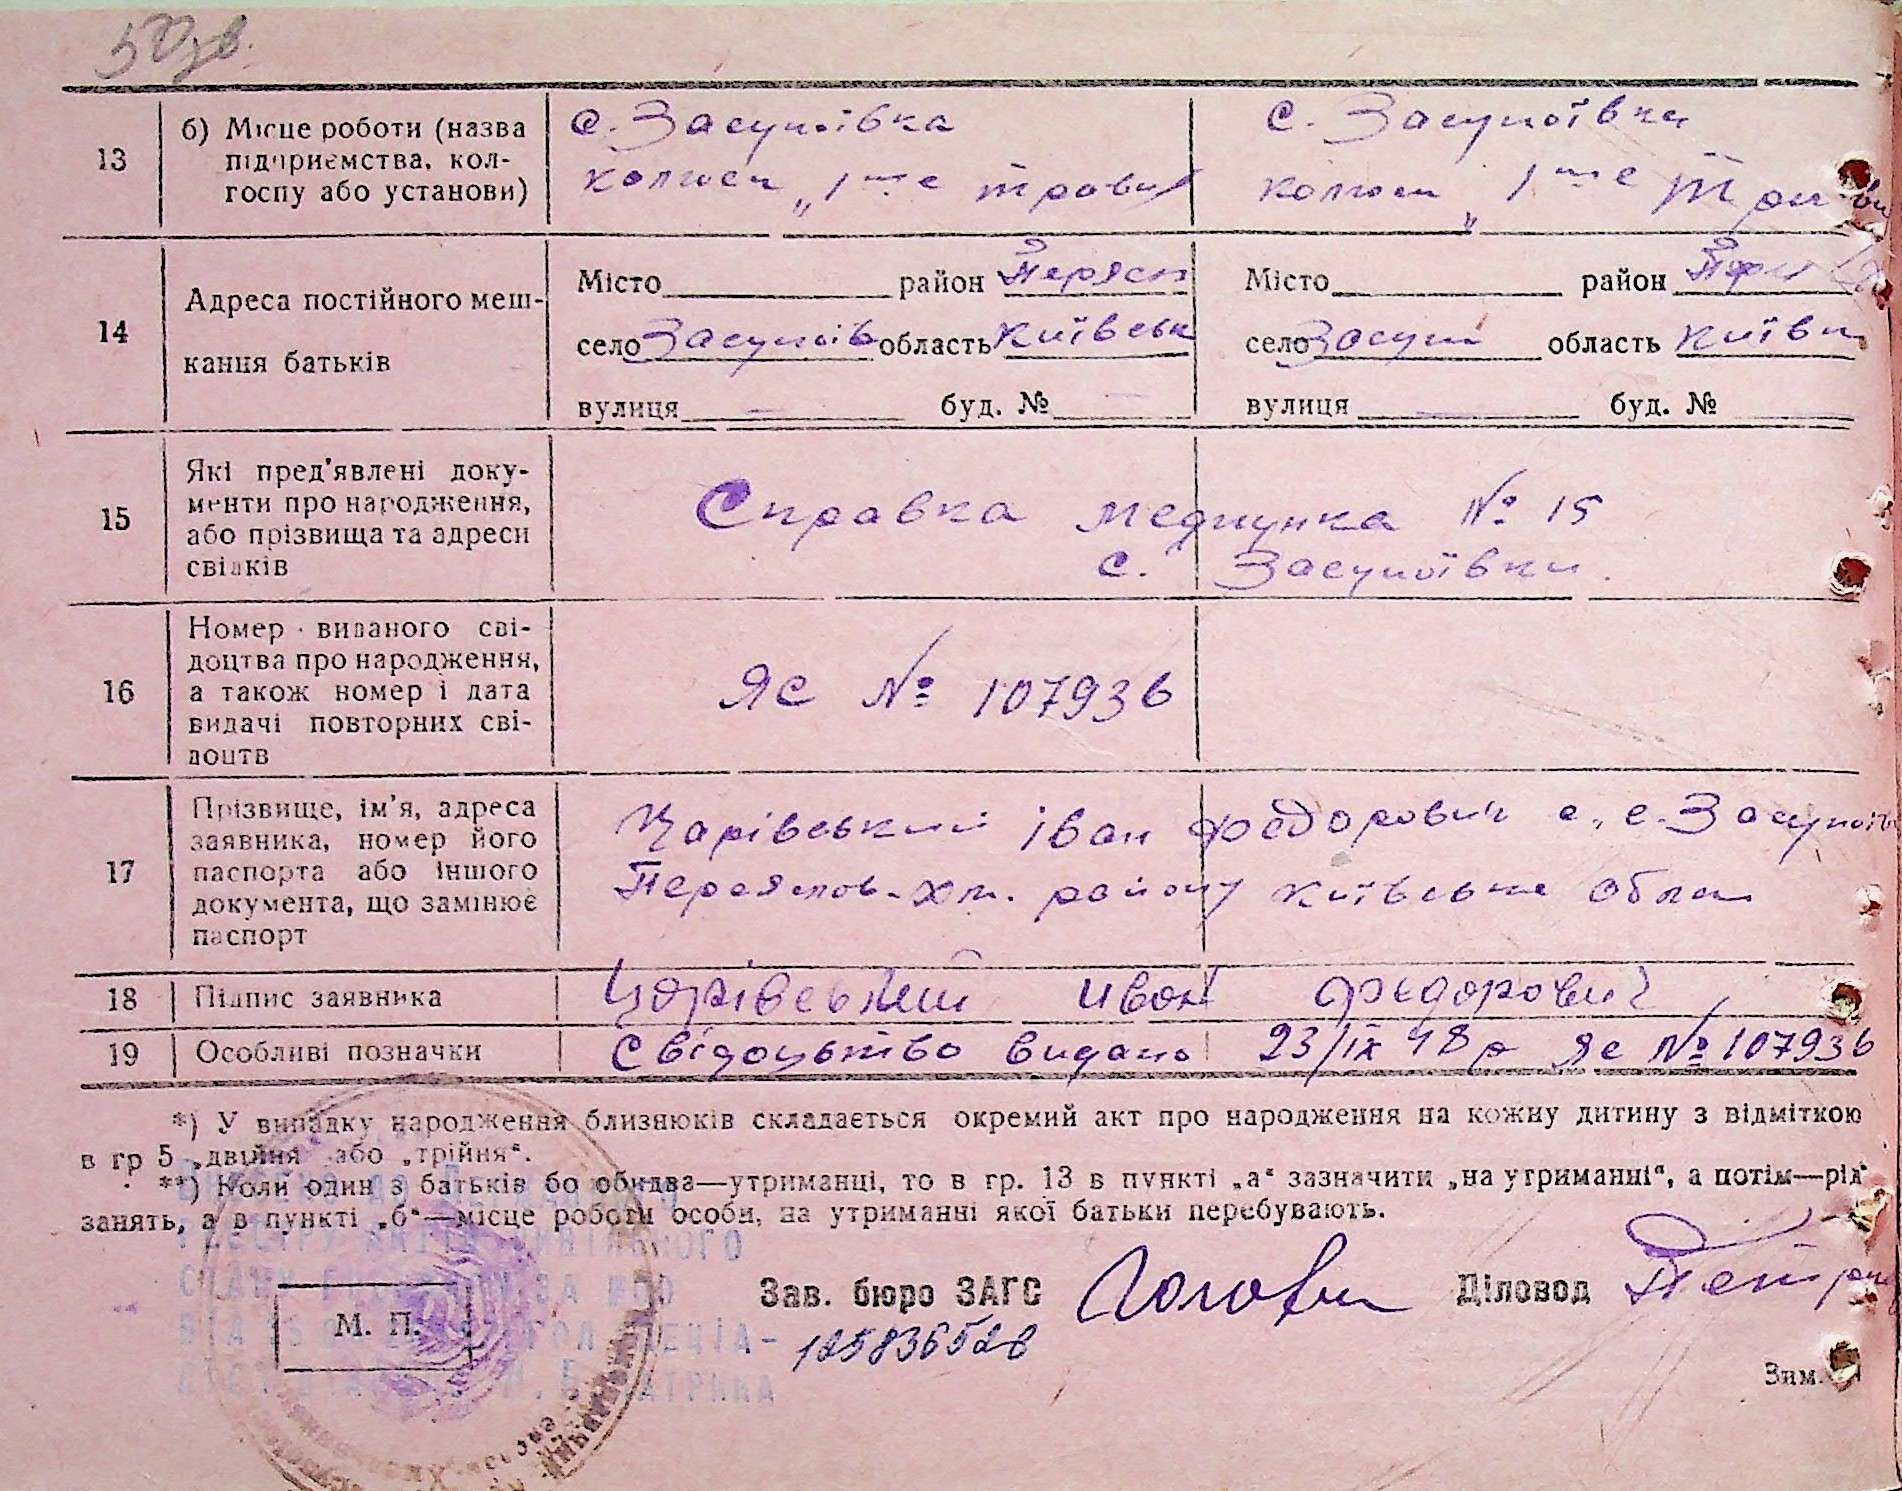 50зв.
13
б) Місце роботи (назва
підприємства, кол-
госпу або установи)
с. Засупоївка
колгосп „1ше травня
с. Засупоївка
колгосп „1ше
14
Адреса постійного меш-
кання батьків
Місто район Переясл
село Засупоїв область Київськ
вулиця — буд. № —
Місто район
село Засуп область Київськ
вулиця — буд. №
15
Які пред'явлені доку-
менти про народження,
або прізвища та адреси
свідків
Справка медпункта № 15
с. Засупоївки.
16
Номер виданого сві-
доцтва про народження,
а також номер і дата
видачі повторних сві-
доцтв
ЯС № 107936
17
Прізвище, ім'я, адреса
заявника, номер його
паспорта або іншого
документа, що замінює
паспорт
Царівський Іван Федорович с. Засупоїв
Переяслов-Хм. району Київське обла
18
Підпис заявника
Царівський Иван Федорович
19
Особливі позначки
Свідоцьтво видано 23/IX 48 р ЯС № 107936
*) У випадку народження близнюків складається окремий акт про народження на кожну дитину з відміткою
в гр 5 „двійня“ або „трійня“.
**) Коли один з батьків бо обидва—утриманці, то в гр. 13 в пункті „а“ зазначити „на утриманні“, а потім—рід
занять, а в пункті „б“—місце роботи особи, на утриманні якої батьки перебувають.
М. П.
Зав. бюро ЗАГС
Діловод
Зим.